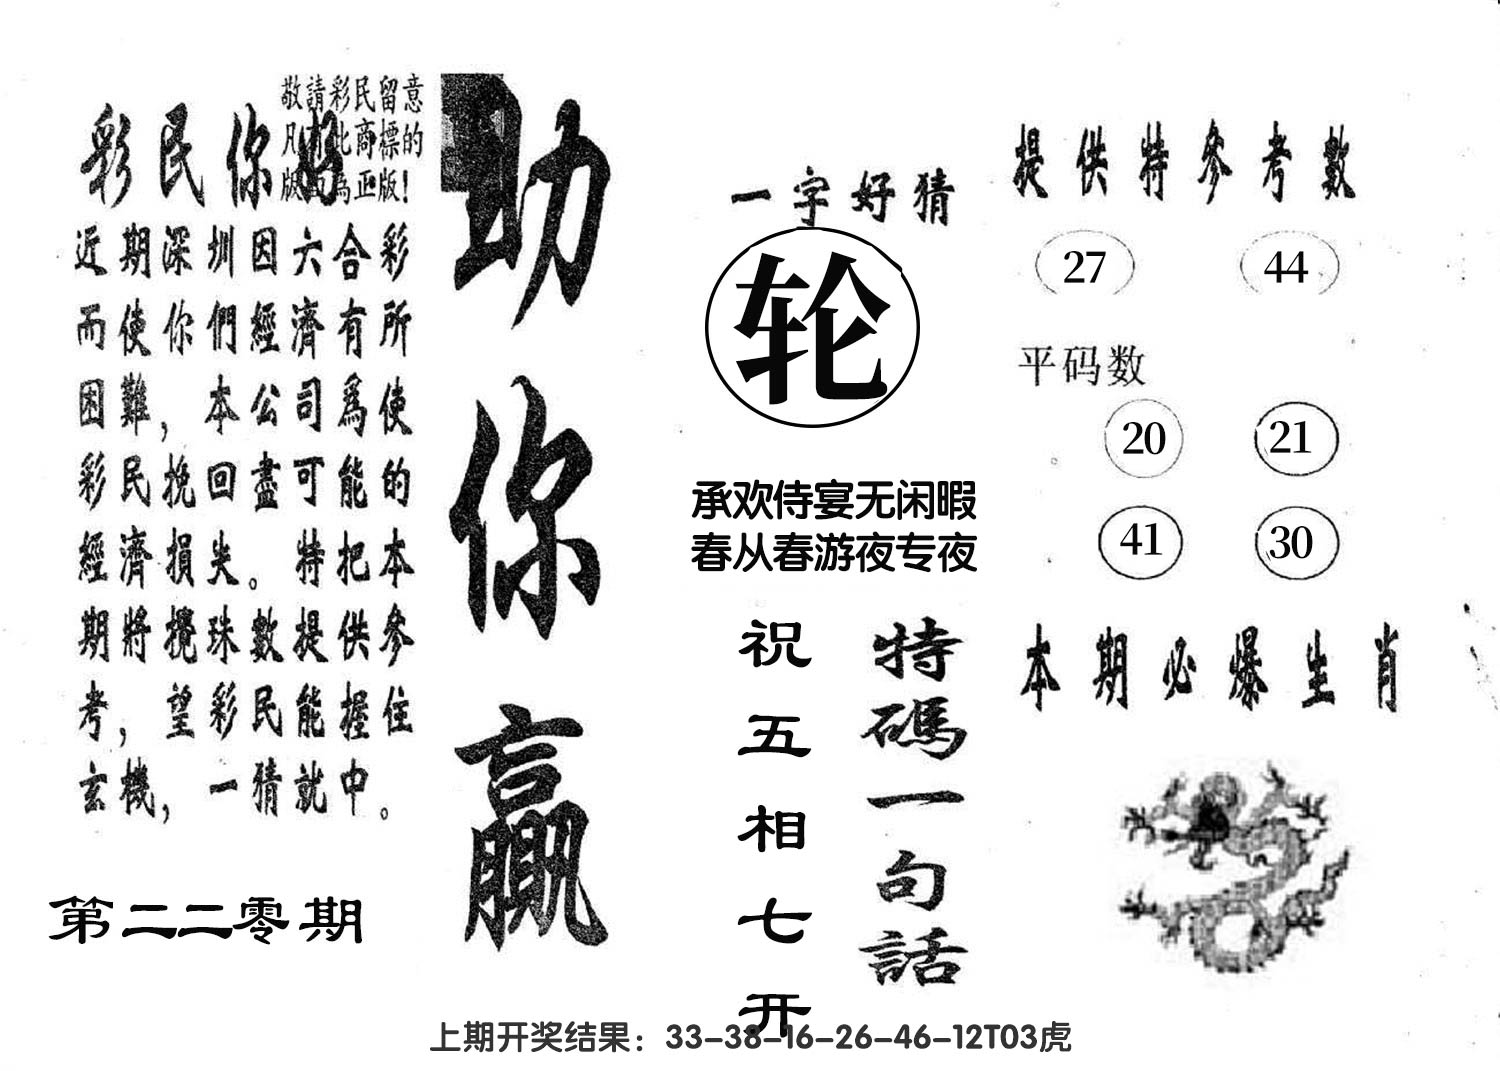 敬請彩民留意
凡有此商標的
版面為正版！
彩民你好
近期深圳因六合彩
而使你們經濟有所
困難，本公司爲使
彩民挽回盡可能的
經濟損失。特把本
期將攪珠數提供參
考，望彩民能握住
玄機，一猜就中。
第二二零期
助你贏
一字好猜
轮
承欢侍宴无闲暇
春从春游夜专夜
特碼一句話
祝五相七开
提供特參考數
27 44
平码数
20 21
41 30
本期必爆生肖
上期开奖结果：33-38-16-26-46-12T03虎